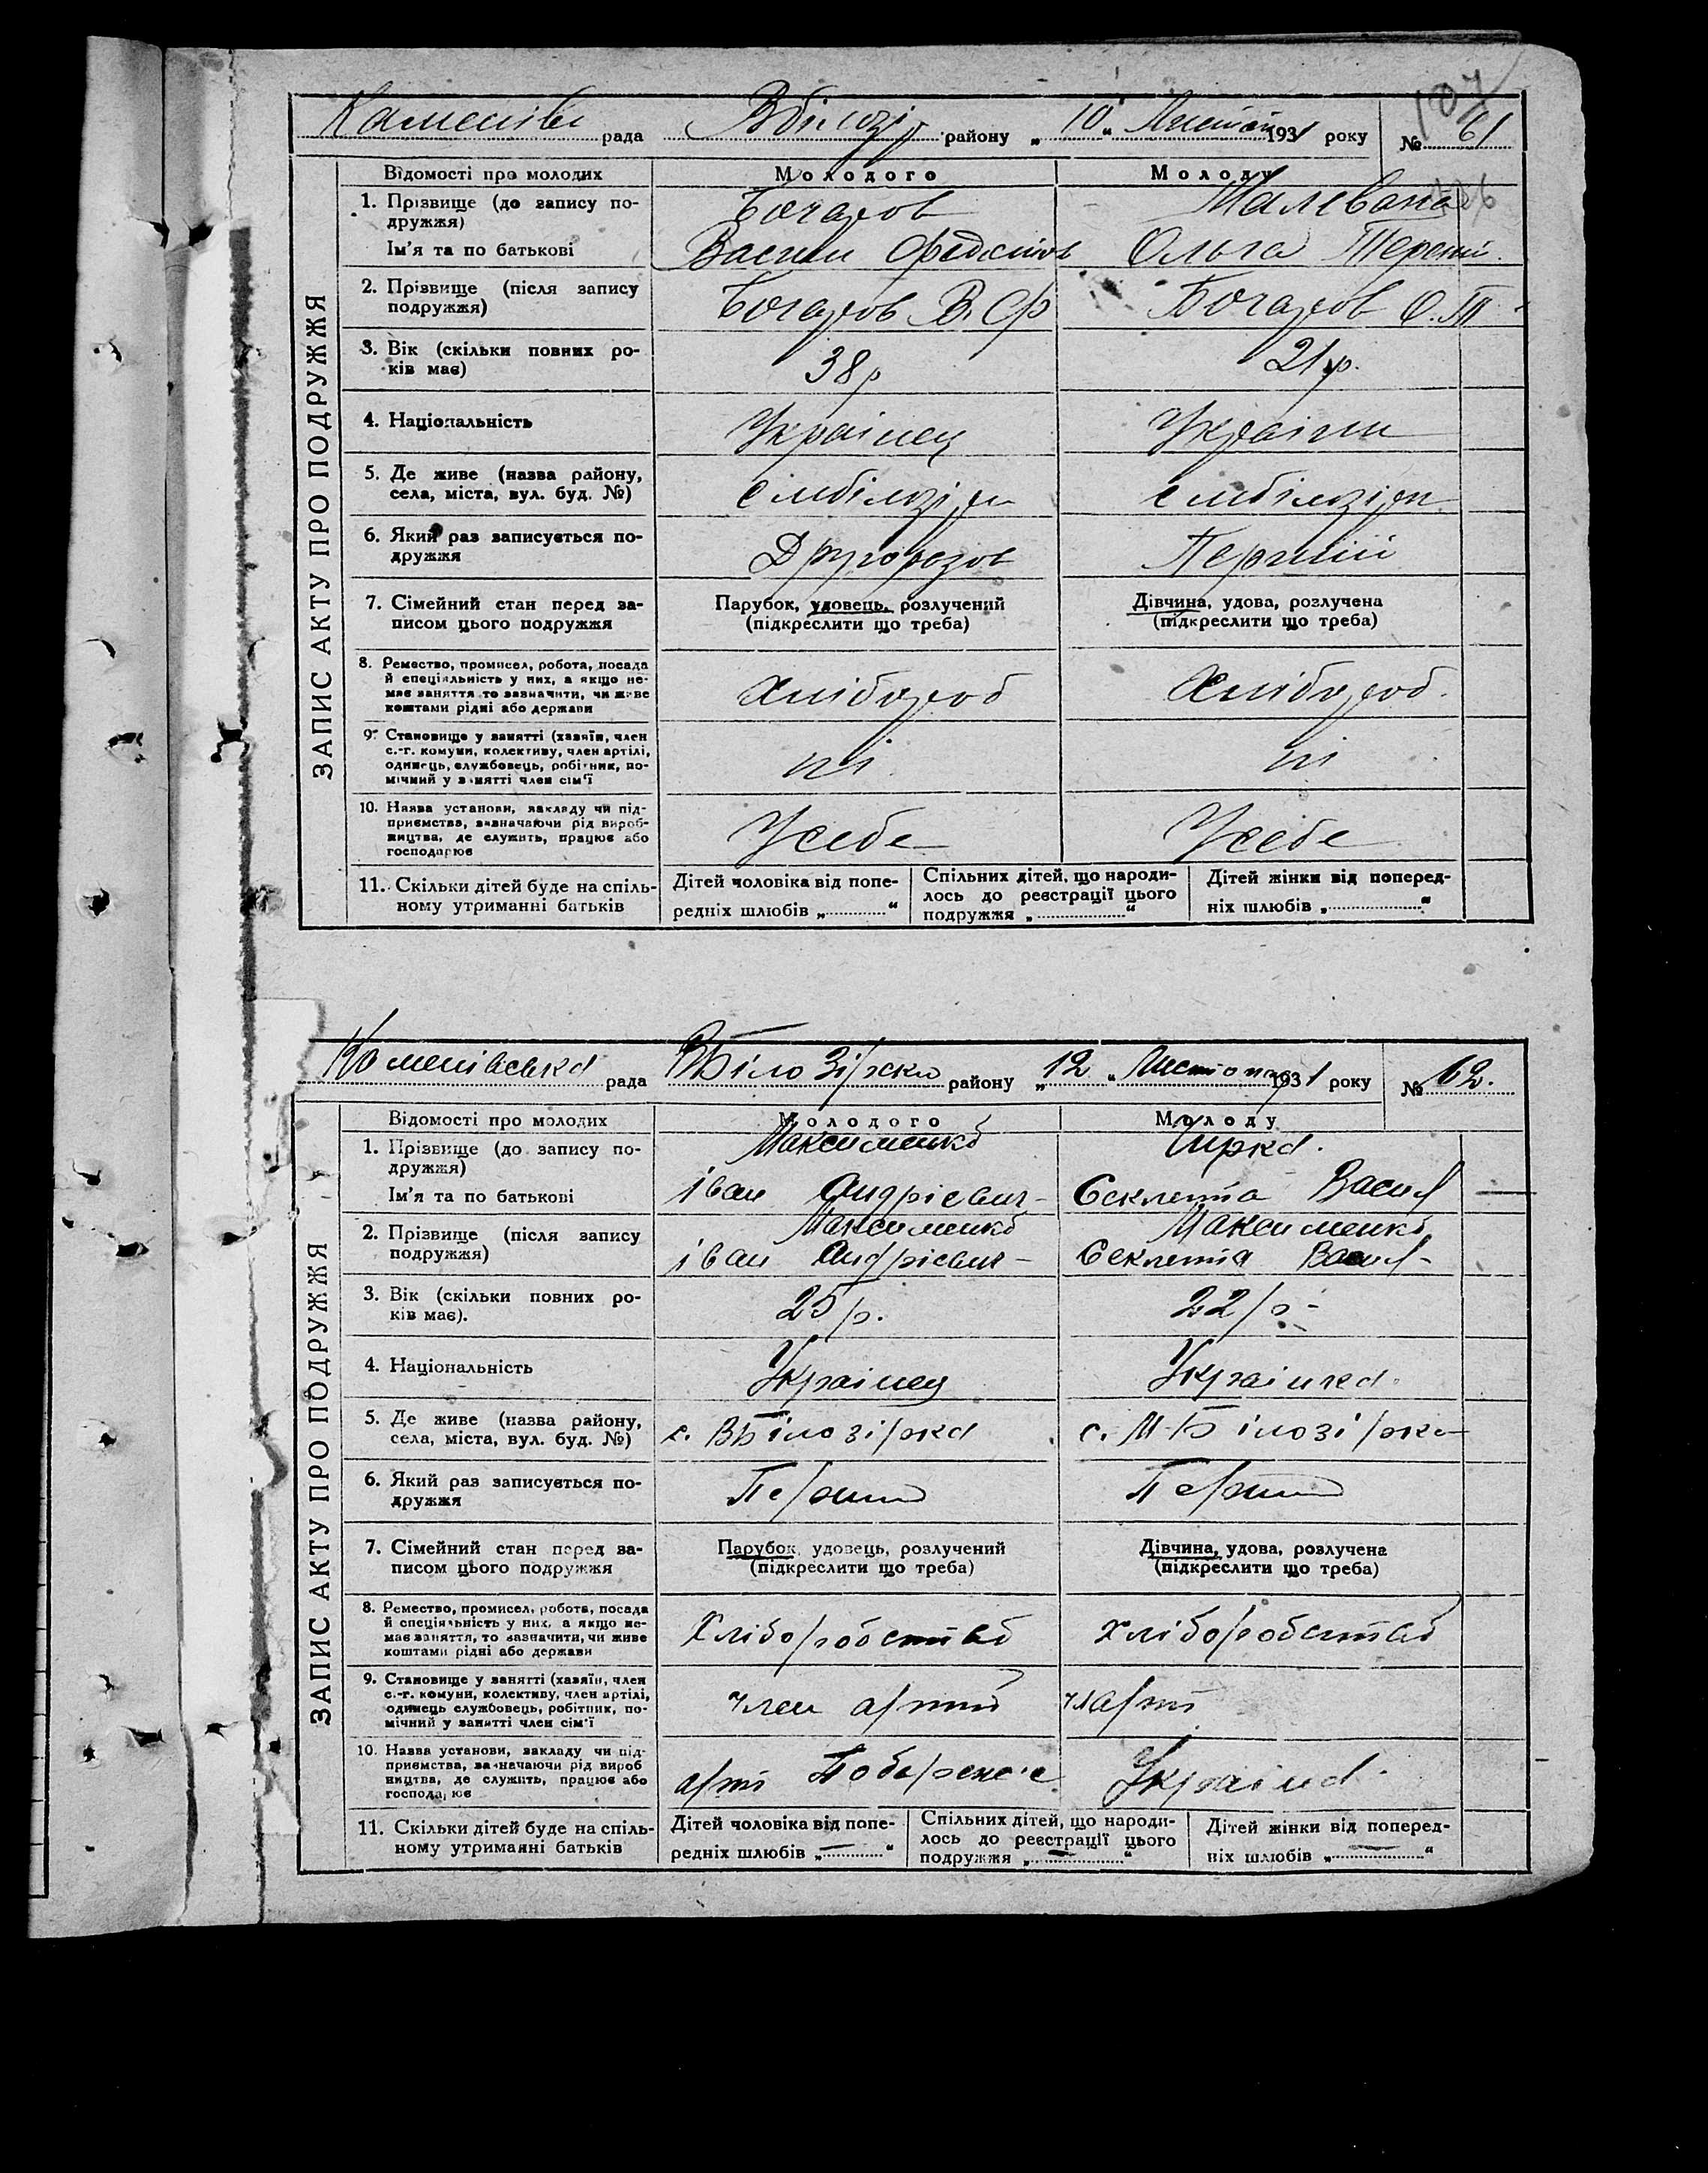 107
Каменівс рада Вбілозір району „10„ Листоп 1931 року № 61
ЗАПИС АКТУ ПРО ПОДРУЖЖЯ
Відомості про молодих Молодого Молоду
1. Прізвище (до запису по- Бочаров Малевана
дружжя)
Ім'я та по батькові Васили Федотов Ольга Терент.
2. Прізвище (після запису Бочаров В. Ф Бочаров О. Т
подружжя)
3. Вік (скільки повних ро- 38 р 21 р.
ків має)
4. Національність Українец Українк
5. Де живе (назва району, с мбілозірк с мбілозірк
села, міста, вул. буд. №)
6. Який раз записується по- Другоразов Перший
дружжя
7. Сімейний стан перед за- Парубок, удовець, розлучений Дівчина, удова, розлучена
писом цього подружжя (підкреслити що треба) (підкреслити що треба)
8. Ремество, промисел, робота, посада
й спеціяльність у них, а якщо не-
має заняття то зазначити, чи живе Хлібороб Хлібороб.
коштами рідні або держави
9. Становище у занятті (хазяїн, член
с.-г. комуни, колективу, член артілі,
одинець, службовець, робітник, по- ні ні
мічний у занятті член сім'ї
10. Назва установи, закладу чи під-
приємства, зазначаючи рід вироб-
ництва, де служить, працює або Усебе Усебе
господарює
11. Скільки дітей буде на спіль- Дітей чоловіка від попе- Спільних дітей, що народи- Дітей жінки від поперед-
ному утриманні батьків редніх шлюбів „ “ лось до реєстрації цього ніх шлюбів „ “
подружжя „ “
Каменівська рада ВБілозірка району „12„ Листопа 1931 року № 62.
ЗАПИС АКТУ ПРО ПОДРУЖЖЯ
Відомості про молодих Молодого Молоду
1. Прізвище (до запису по- Максименко Чирка.
дружжя)
Ім'я та по батькові Іван Андрієвич Секлета Васил
2. Прізвище (після запису Максименко Максименко
подружжя) Іван Андрієвич Секлета Васил
3. Вік (скільки повних ро- 25 р. 22 р
ків має).
4. Національність Українец Українка
5. Де живе (назва району, с. ВБілозірка с. М-Білозірка
села, міста, вул. буд. №)
6. Який раз записується по- Перший Перший
дружжя
7. Сімейний стан перед за- Парубок, удовець, розлучений Дівчина, удова, розлучена
писом цього подружжя (підкреслити що треба) (підкреслити що треба)
8. Ремество, промисел, робота, посада
й спеціяльність у них, а якщо не-
має заняття, то зазначити, чи живе Хліборобство Хліборобство
коштами рідні або держави
9. Становище у занятті (хазяїн, член
с.-г. комуни, колективу, член артілі,
одинець службовець, робітник, по- член артілі чл арті
мічний у занятті член сім'ї
10. Назва установи, закладу чи під-
приємства, зазначаючи рід вироб
ництва, де служить, працює або арті Україна
господарює
11. Скільки дітей буде на спіль- Дітей чоловіка від попе- Спільних дітей, що народи- Дітей жінки від поперед-
ному утриманні батьків редніх шлюбів „—“ лось до реєстрації цього ніх шлюбів „—“
подружжя „—“